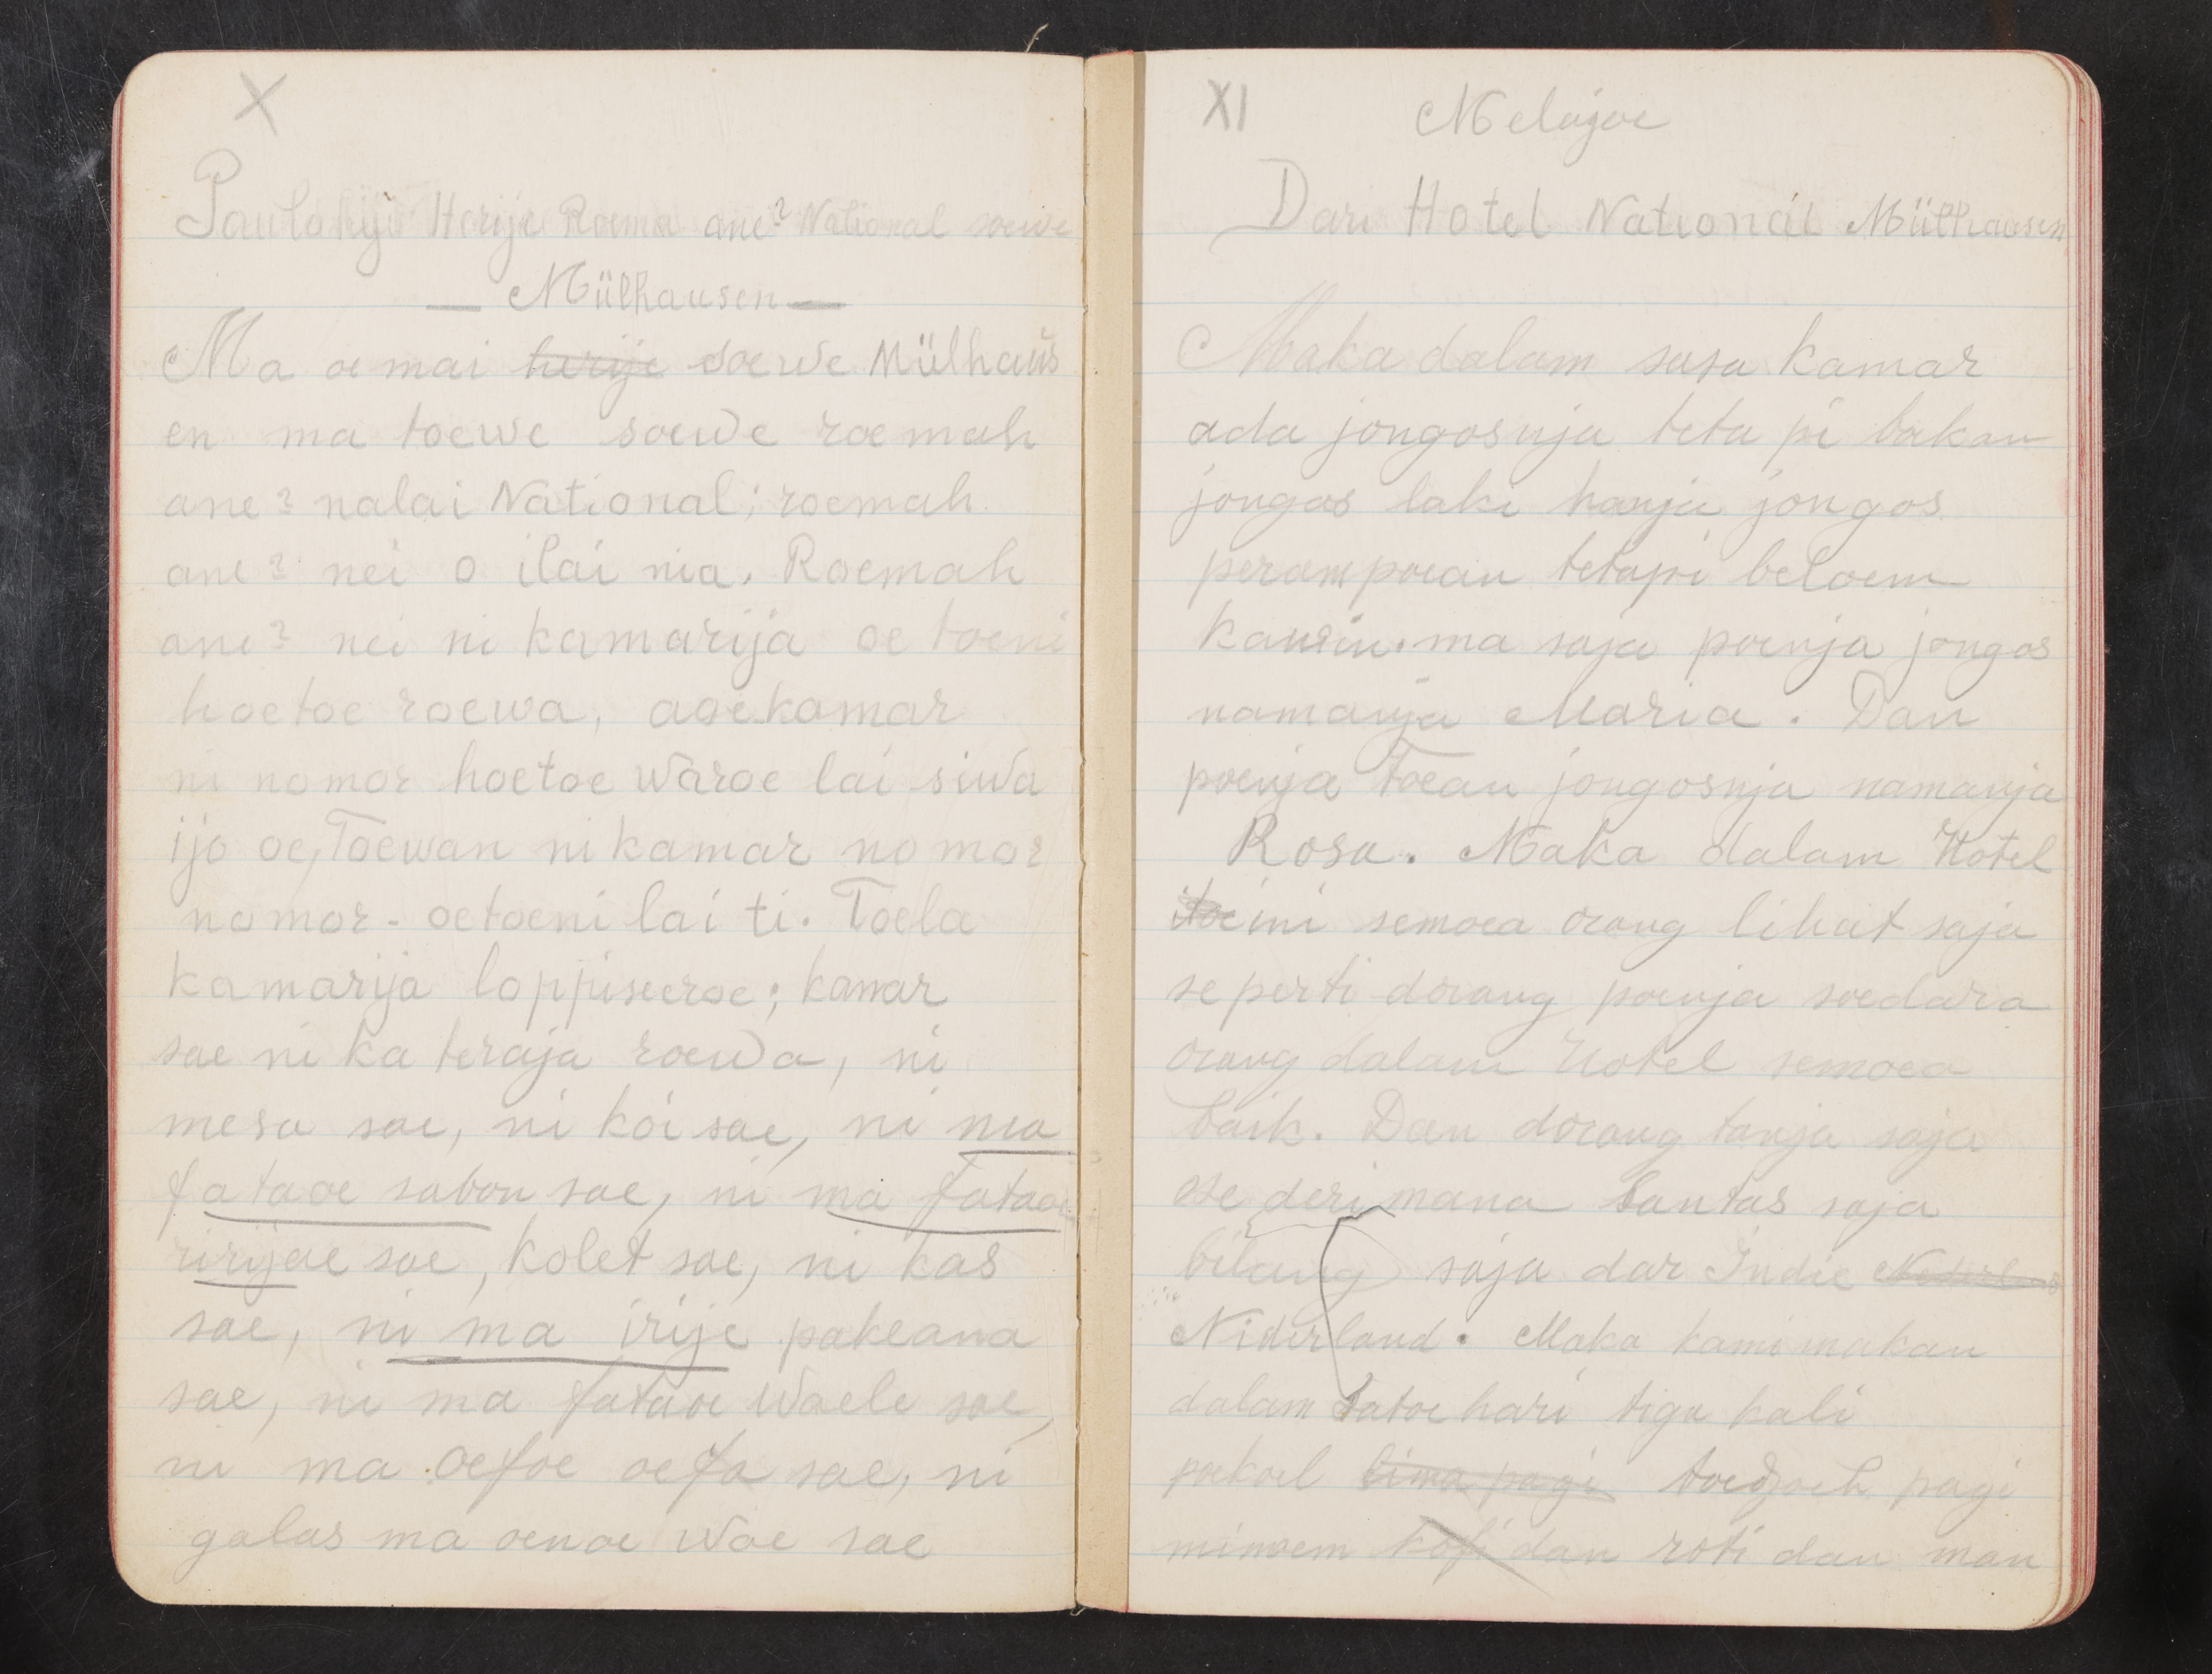 X
Paulohije Herije Roema ane? National soewe
— Mülhausen —
Ma oe mai herije soewe Mülhaus
en ma toewe soewe roemah
ane? nalai National; roemah
ane? nei o ilai nia. Roemah
ane? nei ni kamarija oe toeni
hoetoe roewa, aoe kamar
ni nomor hoetoe waroe lai siwa
ijo oe, Toewan ni kamar nomor
nomor - oetoeni lai ti. Toela
kamarija; kamar
sae ni ka teraja roewa, ni
mesa sae, ni koi sae, ni ma
fataoe sabon sae, ni ma fataoe
ririjae sae, kolet sae, ni kas
sae, ni ma irije pakeana
sae, ni ma fataoe Waele sae,
ni ma oefoe oefa sae, ni
galas ma oenoe Wae sae
XI
Melajoe
Dari Hotel National Mülhausen
Maka dalam sasa kamar
ada jongosnja teta pi bakan
jongos laki hanja jongos
perampoean tetapi beloem
kawin. ma saja poenja jongos
namanja Maria. Dan
poenja Toean jongosnja namanja
Rosa. Maka dalam Hotel
itoe ini semoea orang lihat saja
seperti dorang poenja soedara
orang dalam Hotel semoea
baik. Dan dorang tanja saja
ose deri mana Lantas saja
bilang saja dar Indie Nederland
Niderland. Maka kami makan
dalam satoe hari tiga kali
poekoel lima pagi toedjoeh pagi
minoem kofi dan roti dan man